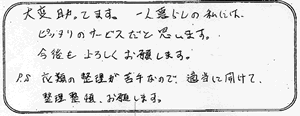 大変助ってます。一人暮しの私には、
ピッタリのサービスだと思います。
今後もよろしくお願します。
P.S 衣類の整理が苦手なので、適当に開けて、
整理整頓、お願します。